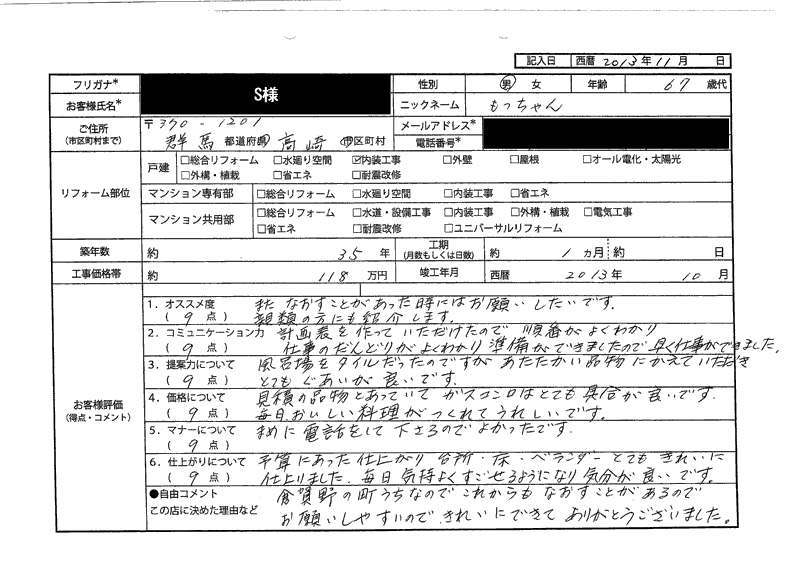 記入日 西暦 2013年 11月 日
フリガナ* S様 性別 男 女 年齢 67 歳代
お客様氏名* ニックネーム もっちゃん
ご住所 (市区町村まで) 〒370-1201 メールアドレス*
群馬 都道府県 高崎 市区町村 電話番号*
リフォーム部位 戸建 □総合リフォーム □水廻り空間 ☑内装工事 □外壁 □屋根 □オール電化・太陽光
□外構・植栽 □省エネ □耐震改修
マンション専有部 □総合リフォーム □水廻り空間 □内装工事 □省エネ
マンション共用部 □総合リフォーム □水道・設備工事 □内装工事 □外構・植栽 □電気工事
□省エネ □耐震改修 □ユニバーサルリフォーム
築年数 約 35 年 工期 (月数もしくは日数) 約 1 カ月 約 日
工事価格帯 約 118 万円 竣工年月 西暦 2013年 10月
お客様評価 (得点・コメント)
1．オススメ度 また なおすことがあった時にはお願いしたいです.
(9点) 親類の方にも紹介します.
2．コミュニケーション力 計画表を作っていただけたので 順番がよくわかり
(9点) 仕事のだんどりがよくわかり 準備ができましたので早く仕事ができました.
3．提案力について 風呂場をタイルだったのですが あたたかい品物にかえていただき
(9点) とてもぐあいが良いです.
4．価格について 見積の品物とあっていて ガスコンロはとても具合が良いです.
(9点) 毎日おいしい料理がつくれてうれしいです。
5．マナーについて まめに電話をして下さるのでよかったです.
(9点)
6．仕上がりについて 予算にあった仕上がり 台所・床・ベランダーとてもきれいに
(9点) 仕上りました. 毎日気持よくすごせるようになり気分が良いです.
●自由コメント 倉賀野の町うちなのでこれからもなおすことがあるので
この店に決めた理由など お願いしやすいので きれいにできて ありがとうございました。